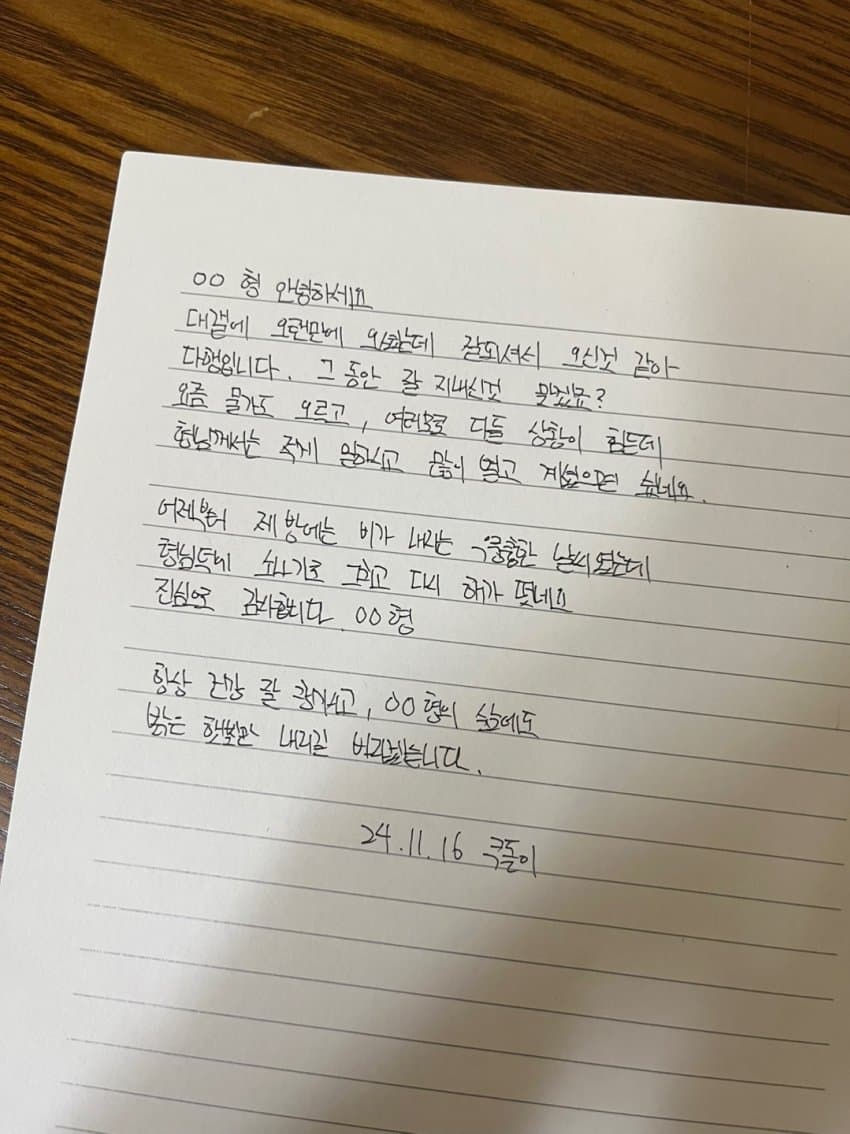 OO 형 안녕하세요
대갤에 오랜만에 오셨는데 잘되셔서 오신것 같아
다행입니다. 그동안 잘 지내신것 맞겠죠?
요즘 물가도 오르고, 여러모로 다들 상황이 힘든데
형님께서는 적게 일하시고 많이 벌고 계셨으면 싶네요.
어제부터 제 방에는 비가 내리는 우중충한 날씨였는데
형님덕에 소나기로 그치고 다시 해가 떴네요
진심으로 감사합니다. OO형
항상 건강 잘 챙기시고, OO형의 삶에도
밝은 햇볕만 내리길 바라겠습니다.
24.11.16 국돌이